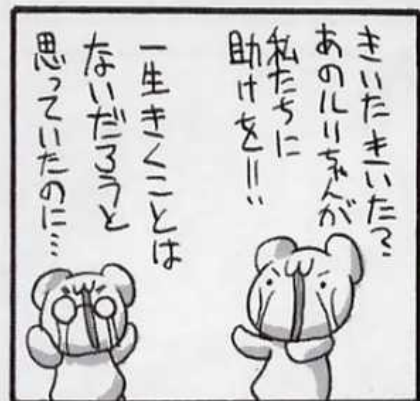 きいたきいた?
あのルリちゃんが
私たちに
助けを!!
一生きくことは
ないだろうと
思っていたのに…